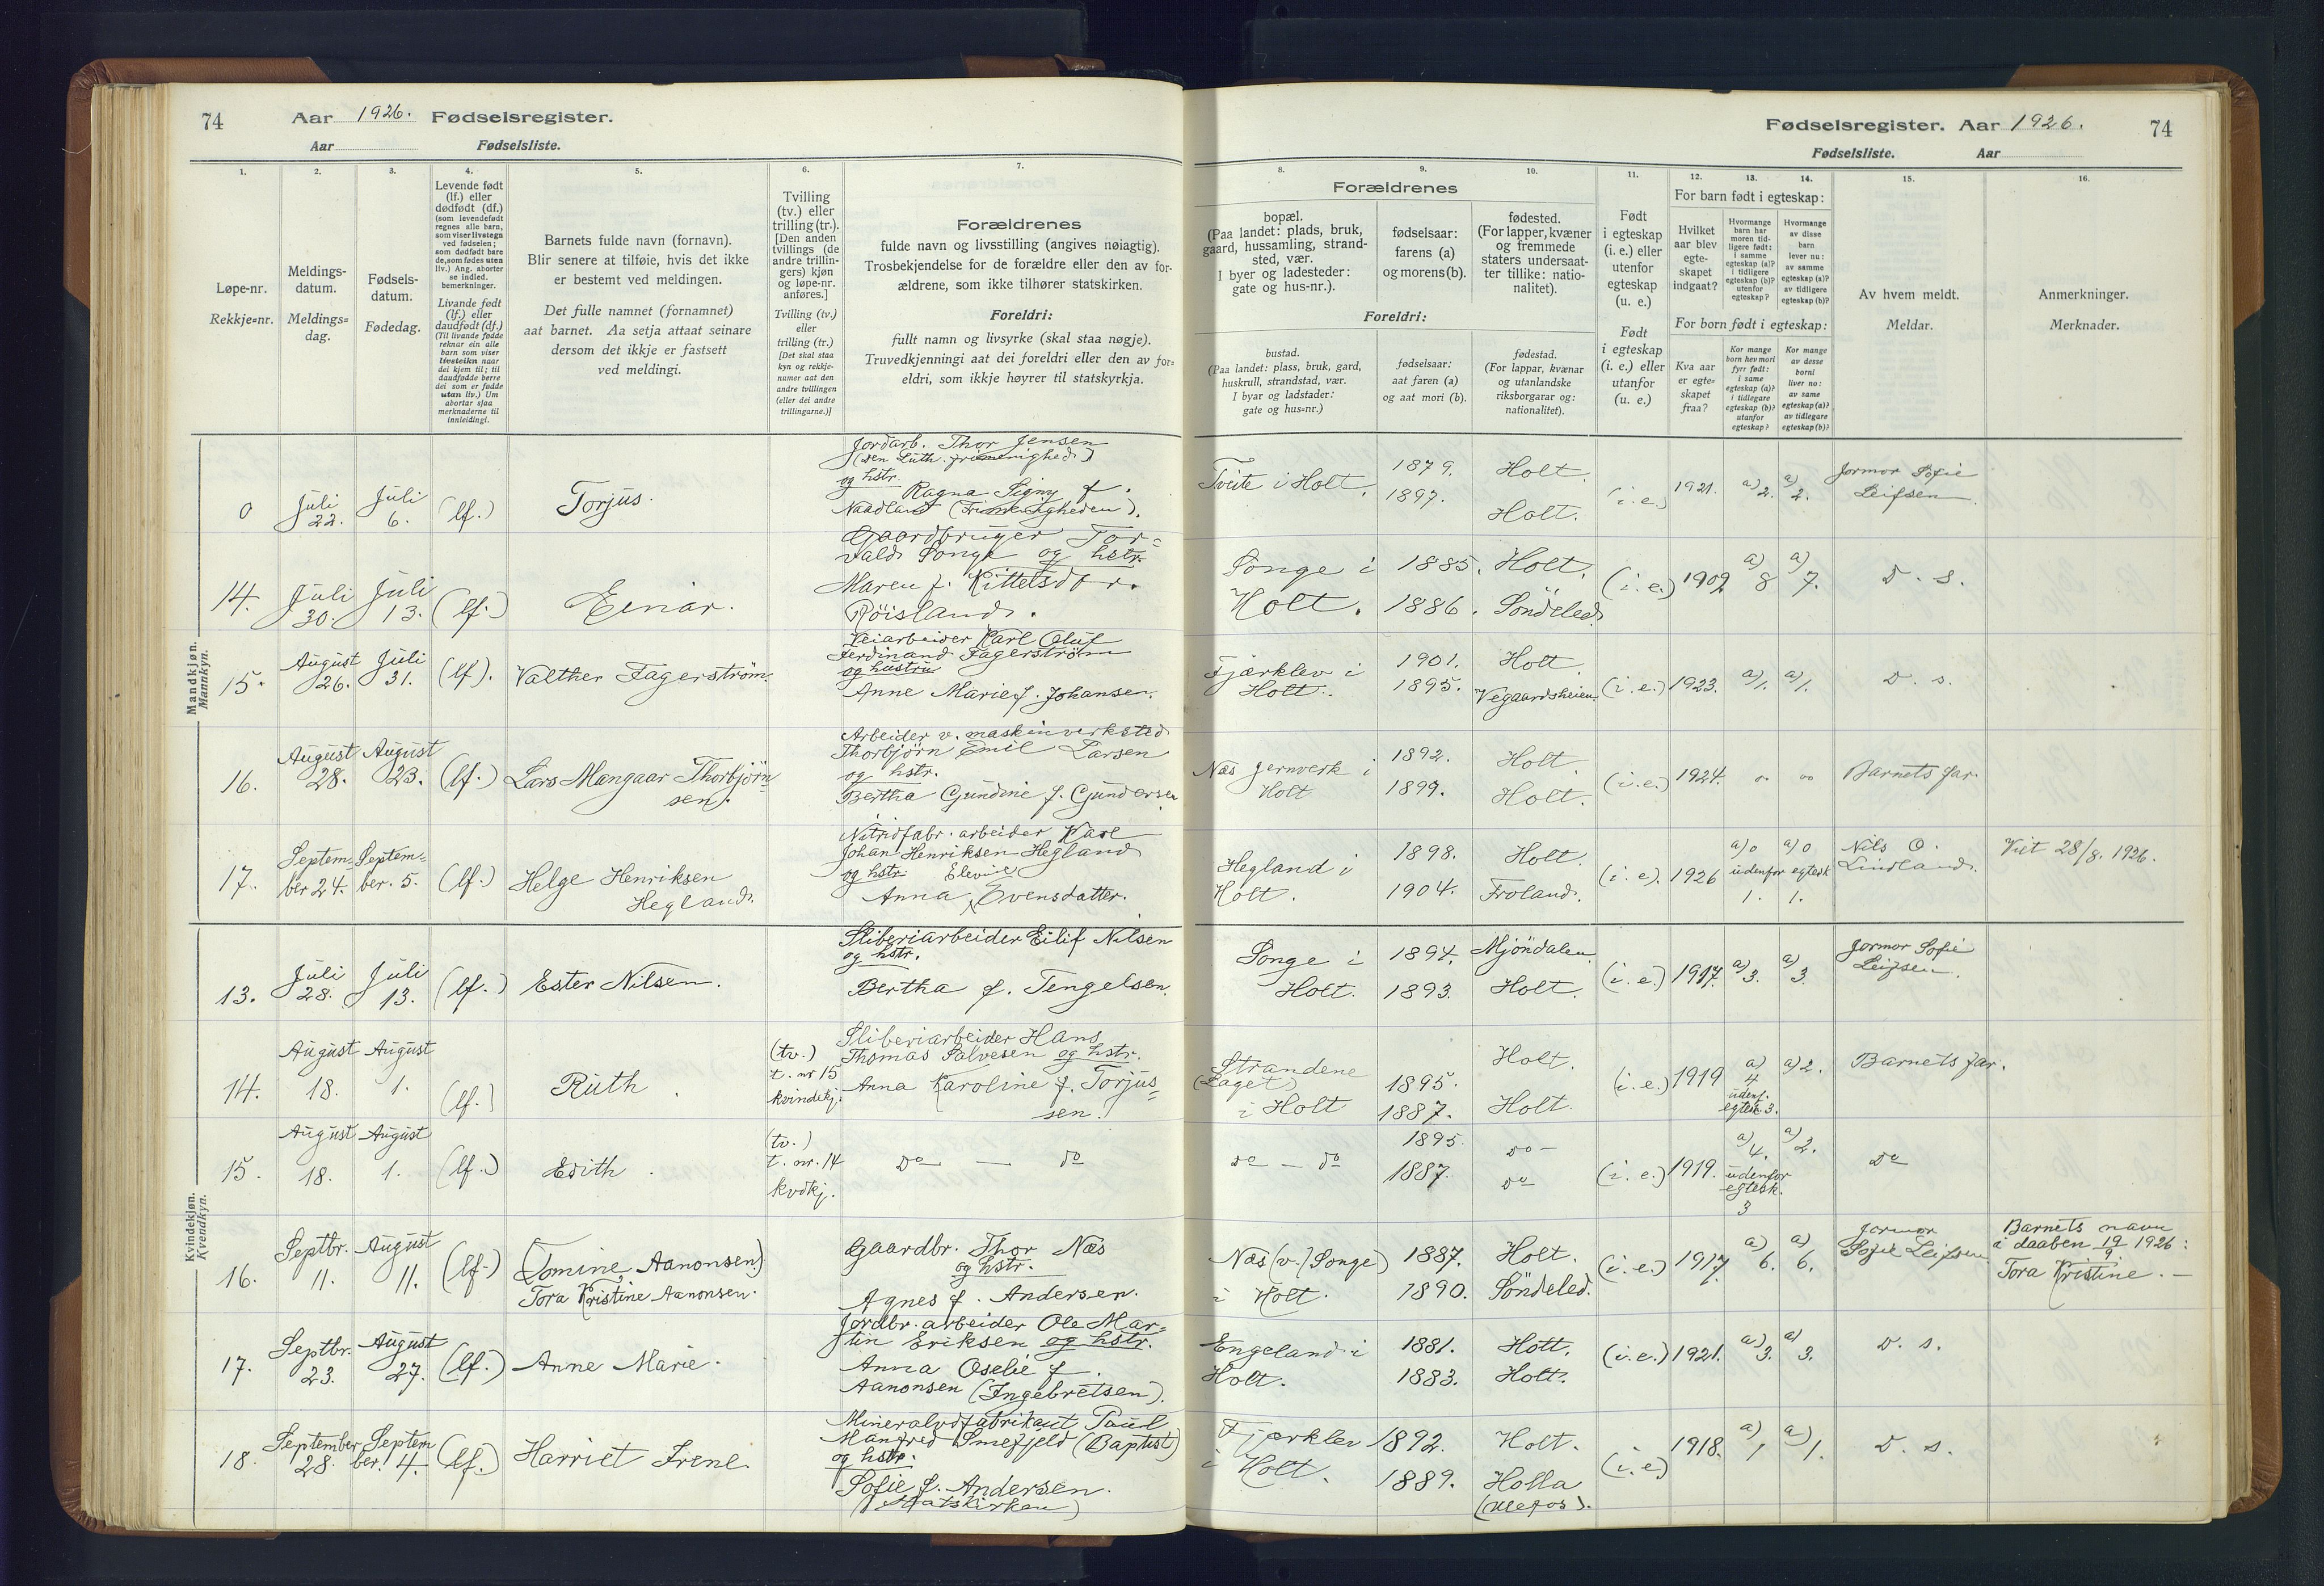 74
Aar 1926. Fødselsregister.
Aar Fødselsliste.
Fødselsregister. Aar 1926.
74
Fødselsliste. Aar
1.
Løpe-nr.
Rekkje=nr.
2.
Meldings-
datum.
Meldings=
dag.
3.
Fødsels-
datum.
Fødedag.
4.
Levende født
(lf.) eller
dødfødt (df.)
(som levendefødt
regnes alle barn,
som viser livstegn
ved fødselen;
som dødfødt bare
de, som fødes uten
liv.) Ang. aborter
se indled.
bemerkninger.
Livande født
(lf.) eller
daudfødt (df.)
(Til livande fødde
reknar ein alle
barn som viser
livsteikn naar
dei kjem til; til
daudfødde berre
dei som er fødde
utan liv.) Um
abortar sjaa
merknaderne til
innleidingi.
5.
Barnets fulde navn (fornavn).
Blir senere at tilføie, hvis det ikke
er bestemt ved meldingen.
Det fulle namnet (fornamnet)
aat barnet. Aa setja attaat seinare
dersom det ikkje er fastsett
ved meldingi.
6.
Tvilling
(tv.) eller
trilling (tr.).
[Den anden
tvillings (de
andre trillin-
gers) kjøn
og løpe-nr.
anføres.]
Tvilling (tv.)
eller
trilling (tr.)
[Det skal staa
kyn og rekkje-
numer aat den
andre tvillingen
(eller dei andre
trillingarne.)]
7.
Forældrenes
fulde navn og livsstilling (angives nøiagtig).
Trosbekjendelse for de forældre eller den av for-
ældrene, som ikke tilhører statskirken.
Foreldri:
fullt namn og livsyrke (skal staa nøgje).
Truvedkjenningi aat dei foreldri eller den av for=
eldri, som ikkje høyrer til statskyrkja.
8.
Forældrenes
bopæl.
(Paa landet: plads, bruk,
gaard, hussamling, strand-
sted, vær.
I byer og ladesteder:
gate og hus-nr.).
Foreldri:
bustad.
(Paa landet: plass, bruk, gard,
huskrull, strandstad, vær.
I byar og ladstader:
gate og hus=nr.)
9.
fødselsaar:
farens (a)
og morens (b).
fødselsaar:
aat faren (a)
og aat mori (b).
10.
fødested.
(For lapper, kvæner
og fremmede
staters undersaat-
ter tillike: natio-
nalitet).
fødestad.
(For lappar, kvænar
og utanlandske
riksborgarar og:
nationalitet).
11.
Født
i egteskap
(i. e.) eller
utenfor
egteskap
(u. e.)
Født
i egteskap
(i. e.) eller
utanfor
(u. e.)
12.
13.
14.
For barn født i egteskap:
Hvilket
aar blev
egte-
skapet
indgaat?
Hvormange
barn har
moren tid-
ligere født:
i samme
egteskap (a)?
i tidligere
egteskap (b)?
utenfor
egteskap?
Hvormange
av disse
barn
lever nu:
av samme
egteskap (a)?
av tidligere
egteskap (b)?
For born født i egteskap:
Kva aar
er egte=
skapet
fraa?
Kor mange
born hev mori
fyrr født:
i same
egteskap (a)?
i tidlegare
egteskap (b)?
utanfor
egteskap?
Kor mange
av desse
borni
liver no:
av same
egteskap (a)?
av tidlegare
egteskap (b)?
15.
Av hvem meldt.
Meldar.
16.
Anmerkninger.
Merknader.
Mandkjøn.
Mannkyn.
0 Juli 22. Juli 6. (lf.) Torjus.
Jordarb. Thor Jensen
(den Luth. frimenighed)
og hstr.
Ragna Signy f.
Naadland (Frimenigheden).
Tveite i Holt. 1879. Holt. 1897. Holt. (i e.) 1921. a) 2. a) 2. Jormor Sofie
Leifsen
14. Juli 30. Juli 13. (lf.) Einar.
Gaardbruger Tor=
vald Songe og hstr.
Maren f. Kittelsdtr.
Röisland.
Songe i Holt. 1885. Holt. 1886. Söndeled. (i. e.) 1909 a) 8 a) 7. D. s.
15. August 26. Juli 31. (lf). Valther Fagerström.
Veiarbeider Karl Oluf
Ferdinand Fagerström
og hustru
Anne Marie f. Johansen.
Fjærklev i Holt. 1901. Holt. 1895. Vegaardsheien. (i. e.) 1923. a) 1. a) 1. D. s.
16. August 28. August 23. (lf.) Lars Mangaar Thorbjörn=
sen.
Arbeider v. maskinverksted
Thorbjörn Emil Larsen
og hstr.
Bertha Gundine f. Gundersen
Næs Jernverk i Holt 1892. Holt. 1899. Holt. (i. e.) 1924. o. oo Barnets far.
17. Septem=
ber 24. Septem=
ber. 5. (lf.) Helge Henriksen
Hegland.
Nitridfabr. arbeider Karl
Johan Henriksen Hegland
og hstr. Elevine
Anna Evensdatter.
Hegland i Holt. 1898. Holt. 1904. Froland. (i. e). 1926 a) 0 a) 0
udenfor egtesk
1. 1.
Nils O.
Lindland.
Viet 28/8. 1926.
Kvindekjøn.
Kvendkyn.
13. Juli 28. Juli 13. (lf.) Ester Nilsen.
Sliberiarbeider Eilif Nilsen
og hstr.
Bertha f. Tengelsen.
Songe i Holt. 1894. Mjöndalen. 1893. Holt. (i. e.) 1917. a) 3. a) 3 Jormor Sofie
Leifsen.
14. August 18. August 1. (lf.) Ruth.
(tv.)
t. nr 15
kvindekj.
Sliberiarbeider Hans
Thomas Salvesen og hstr.
Anna Karoline f. Torjus=
sen.
Strandene
(Laget)
i Holt 1895. Holt. 1887. Holt. (i. e.) 1919 a) 4
udenf.
egtesk 3. a) 2. Barnets far.
15. August 18. August 1. (lf.) Edith.
(tv.)
t. nr. 14
kvdkj.
do — do
do — do 1895. do — 1887. do (i. e.) 1919. a) 4.
udenfor
egtesk.
3 a) 2. do
16. Septbr. 11. August 11. (lf.) (Tomine Aanonsen.)
Tora Kristine Aanonsen.
Gaardbr. Thor Næs
og hstr.
Agnes f. Andersen.
Næs (v. Songe) i Holt. 1887. Holt. 1890. Söndeled. (i. e.) 1917. a) 6. a) 6. Jormor
Sofie Leifsen
Barnets navn
i daaben 19/9 1926:
Tora Kristine. —
17. Septbr. 23. August 27. (lf.) Anne Marie.
Jordbr. arbeider Ole Mar=
tin Eriksen og hstr.
Anna Oselie f.
Aanonsen (Ingebretsen).
Engeland i Holt. 1881. Holt. 1883. Holt. (i. e.) 1921. a) 3. a) 3. D. s.
18. September 28. Septem
ber. 4. (lf.) Harriet Irene.
Mineralvdfabrikant Paul
Manfred Smefjeld (Baptist)
og hstr.
Sofie f. Andersen.
(Statskirken)
Fjærklev i Holt. 1892. Holt. 1889. Holla
(Ulefos). (i. e.) 1918. a) 1 a) 1. D. s.